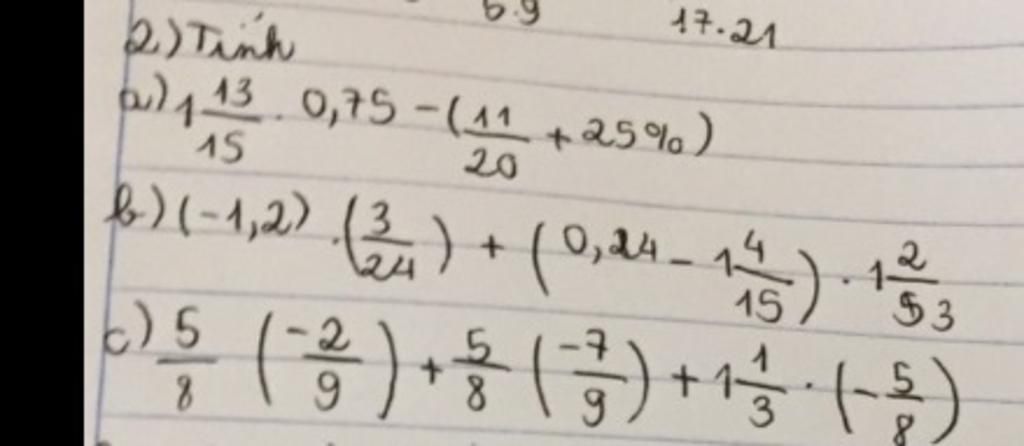 6.9 17.21
2) Tính
a) 1 13/15 . 0,75 - (11/20 + 25%)
b) (-1,2) . (3/24) + (0,24 - 1 4/15) . 1 2/3
c) 5/8 (-2/9) + 5/8 (-7/9) + 1 1/3 . (-5/8)